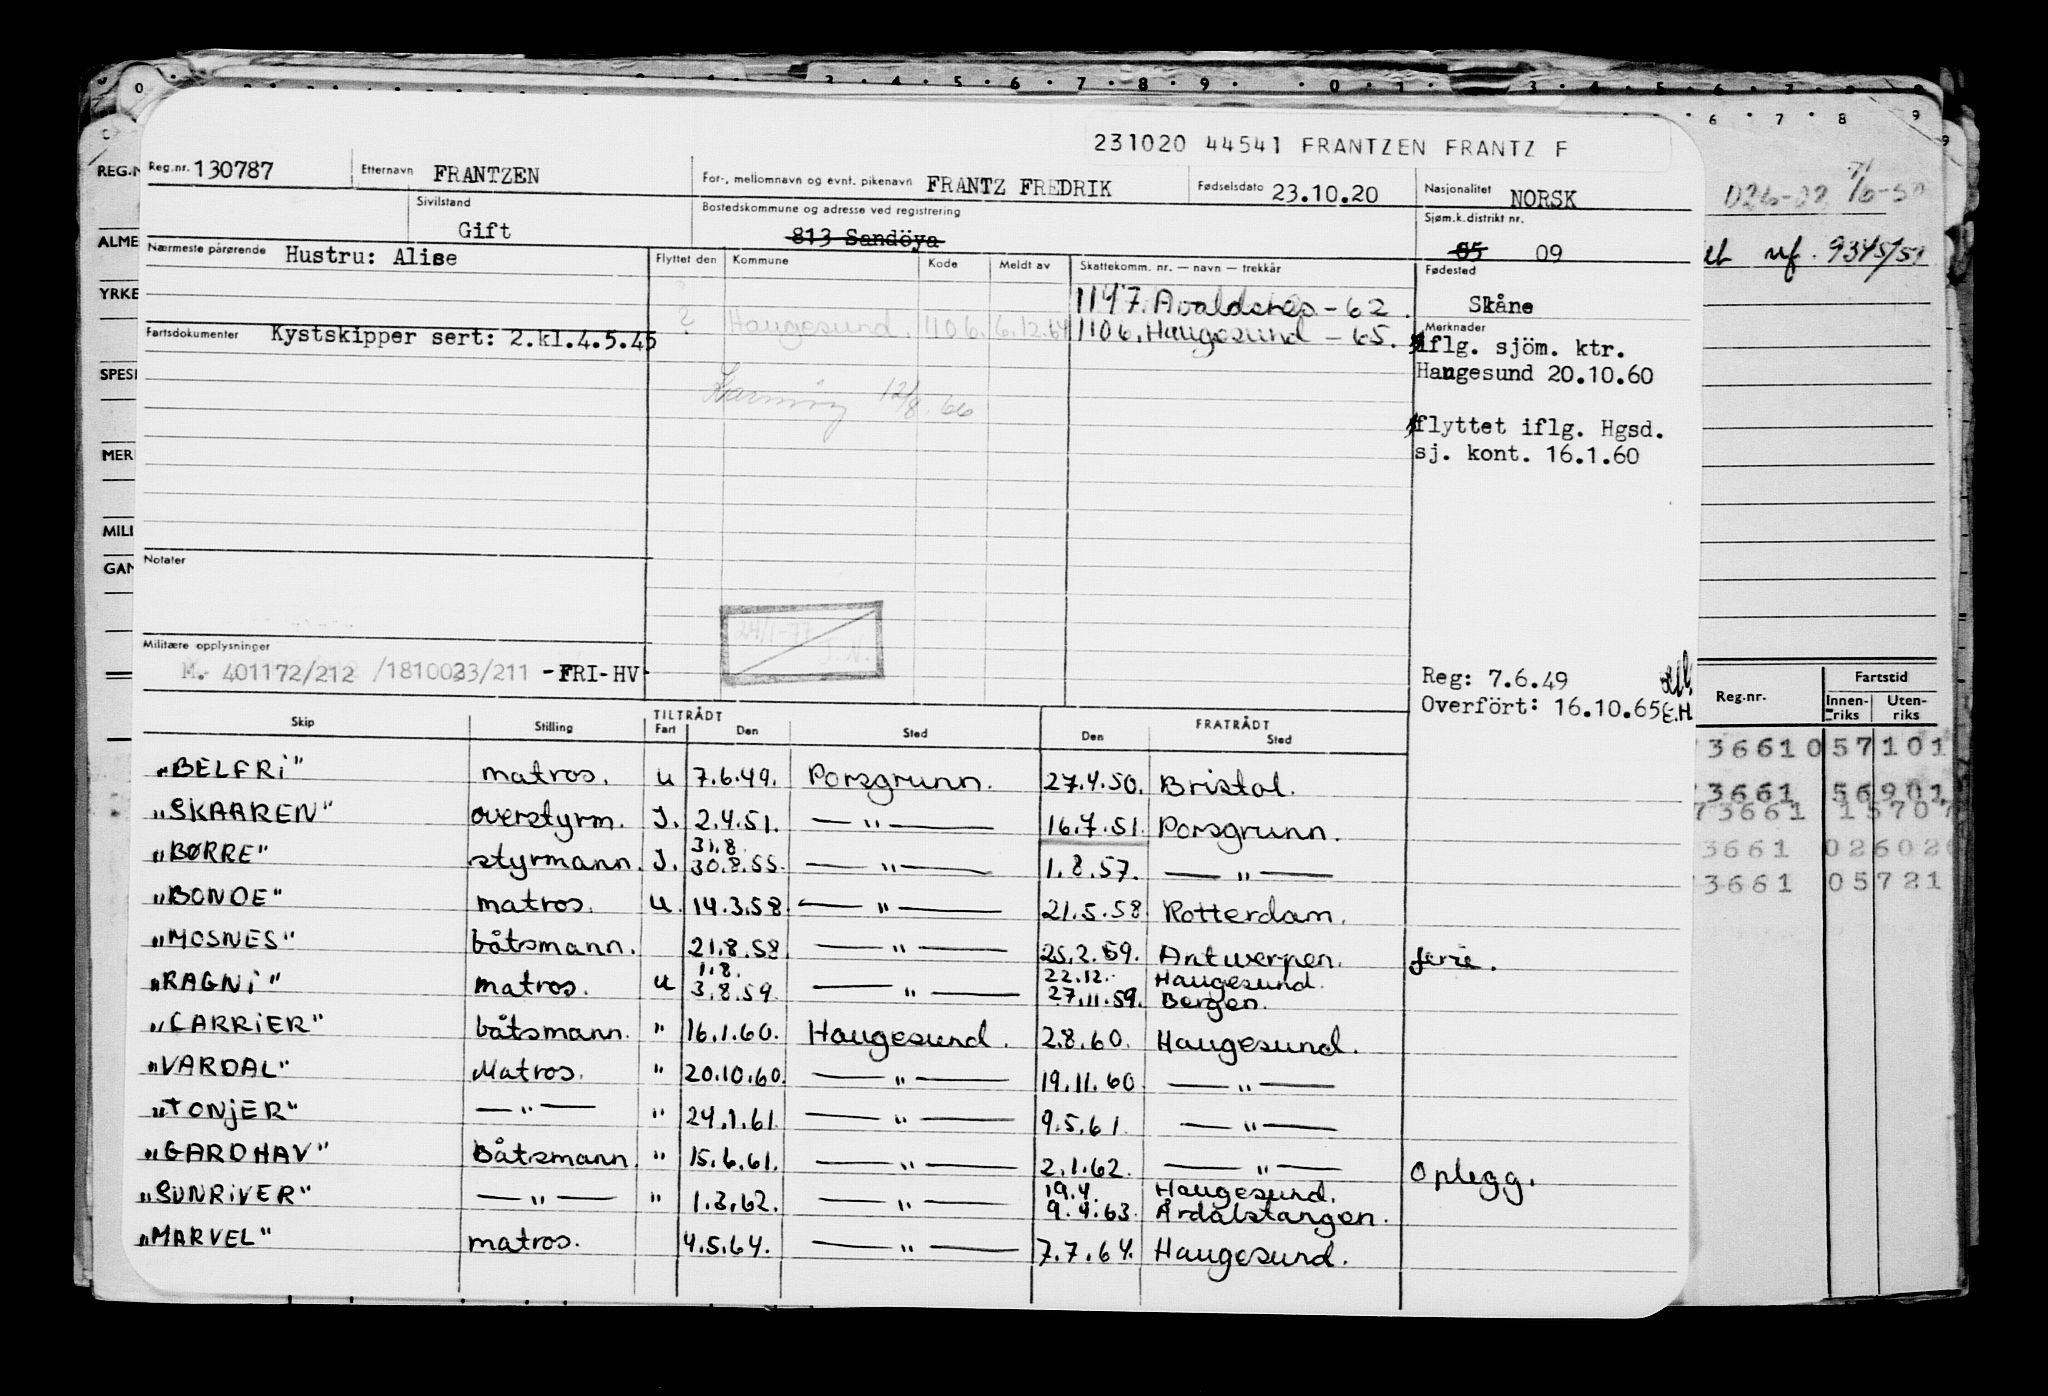 231020 44541 FRANTZEN FRANTZ F
Reg.nr. 130787 Etternavn FRANTZEN For-, mellomnavn og evnt. pikenavn FRANTZ FREDRIK Fødselsdato 23.10.20 Nasjonalitet NORSK
Sivilstand Gift Bostedskommune og adresse ved registrering 813 Sandöya Sjøm.k.distrikt nr. 05 09
Nærmeste pårørende Hustru: Alise Flyttet den Kommune Kode Meldt av Skattekomm. nr. — navn — trekkår Fødested
1147. Avaldsnes - 62. Skåne
? Haugesund. 1106. 6.12.64 1106. Haugesund - 65.
Fartsdokumenter Kystskipper sert: 2.kl.4.5.45
Merknader
iflg. sjöm. ktr.
Haugesund 20.10.60
Karmøy 12/8.66
flyttet iflg. Hgsd.
sj. kont. 16.1.60
Notater
24/1-77
J.N.
Militære opplysninger
M. 401172/212 /1810033/211 -FRI-HV
Reg: 7.6.49
Overfört: 16.10.65 E.H
Skip Stilling TILTRÅDT Fart Den Sted FRATRÅDT Den Sted
"BELFRi" matros. u 7.6.49. Porsgrunn. 27.4.50. Bristol.
"SKAAREN" overstyrm. J. 2.4.51. — " — 16.7.51. Porsgrunn.
31.8.
"BØRRE" styrmann. J. 30.8.55. — " — 1.8.57. — " —
"BONDE" matros. u 14.3.58. — " — 21.5.58 Rotterdam.
"MOSNES" båtsmann. 21.8.58. — " — 25.2.59. Antwerpen. ferie.
1.8. 22.12. Haugesund.
"RAGNi" matros. u 3.8.59. — " — 27.11.59. Bergen.
"CARRiER" båtsmann. " 16.1.60. Haugesund. 2.8.60. Haugesund.
"VARDAL" Matros. " 20.10.60. — " — 19.11.60 — " —
"TONjER" — " — " 24.1.61. — " — 9.5.61. — " —
"GARDHAV" Båtsmann. " 15.6.61. — " — 2.1.62. — " — Oplegg.
19.4. Haugesund.
"SUNRiVER" — " — " 1.3.62. — " — 9.4.63. Årdalstangen.
"MARVEL" matros. 4.5.64. — " — 7.7.64. Haugesund.
REG.N
ALME
YRKE
SPESI
MER
MILI
GAN
9345/51
Reg.nr. Fartstid
Innen-riks Uten-riks
73661 057101
73661 56901
73661 15707
3661 02602
3661 05721